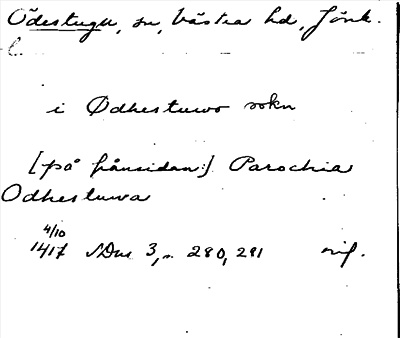 Ödestugu, sn, Västra hd, Jönk.
l.
i Ødhestuwo sokn
[på frånsidan:] Parochia
Odhestuwa
4/10
1417 SDns 3, s. 280, 281 nif.